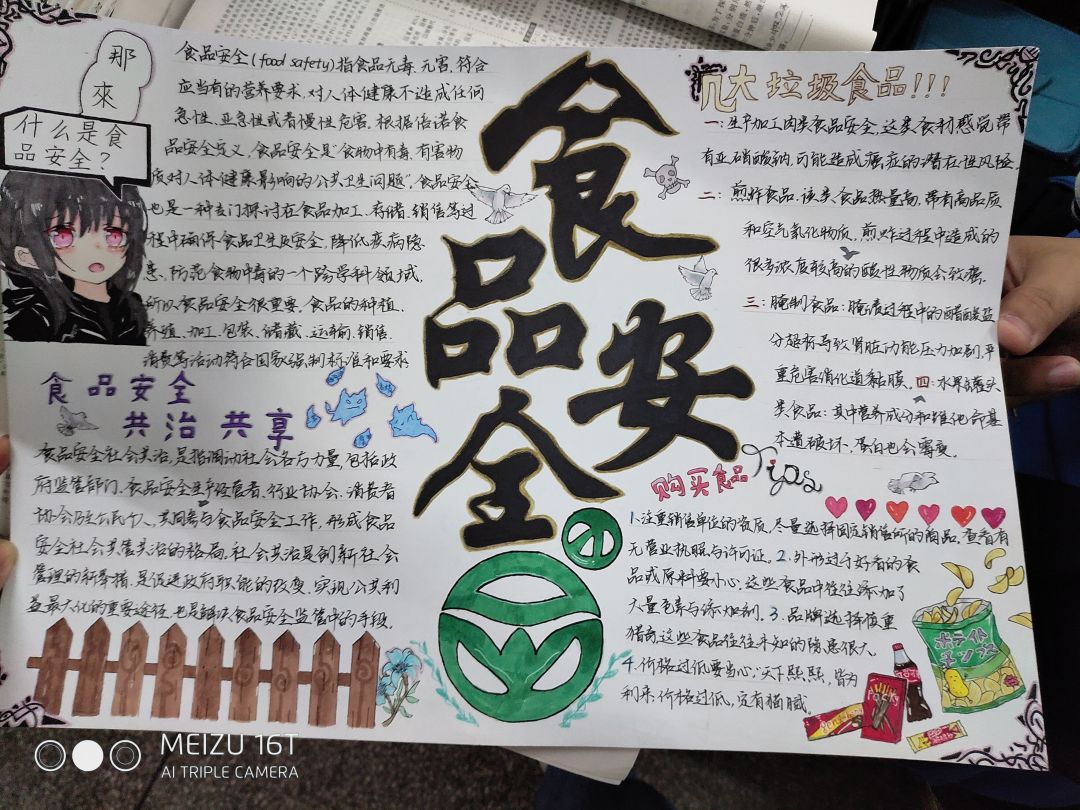 那
來
什么是食
品安全?
食品安全(food safety)指食品无毒、无害,符合
应当有的营养要求,对人体健康不造成任何
急性、亚急性或者慢性危害。根据倍诺食
品安全定义,食品安全是"食物中有毒、有害物
质对人体健康影响的公共卫生问题"。食品安全
也是一种专门探讨在食品加工、存储、销售等过
程中确保食品卫生及安全,降低疾病隐
患,防范食物中毒的一个跨学科领域,
所以食品安全很重要。食品的种植,
养殖、加工、包装、储藏、运输、销售、
消费等活动符合国家强制标准和要求
食品安全
共治共享
食品安全社会共治,是指调动社会各方力量,包括政
府监管部门、食品安全生产经营者、行业协会、消费者
协会乃至公民个人,共同参与食品安全工作,形成食品
安全社会共管共治的格局。社会共治是创新社会
管理的新举措,是促进政府职能的改变,实现公共利
益最大化的重要途径,也是解决食品安全监管中的手段。
食品安全
几大垃圾食品!!!
一:生产加工肉类食品安全,这类食物感觉带
有亚硝酸钠,可能造成癌症的潜在性风险。
二:煎炸食品,该类食品热量高,带有高品质
和空气氧化物质,煎炸过程中造成的
很多浓度较高的酸性物质会致癌。
三:腌制食品:腌渍过程中的醋酸盐
分超标导致肾脏功能压力加剧,平
重危害消化道黏膜。四:水果罐头
类食品:其中营养成分和维他命基
本遭破坏,蛋白也会需变。
购买食品Tips
1.注重销售单位的资质,尽量选择固定销售所的商品,查看有
无营业执照与许可证。2.外形过于好看的食
品或原料要小心,这些食品中往往添加了
大量色素与添加剂。3.品牌选择慎重
猎奇,这些食品往往未知的隐患很大。
4.价格过低要当心,"天下熙熙,皆为
利来",价格过低,定有猫腻。
ポテイト
チップス
MEIZU 16T
AI TRIPLE CAMERA